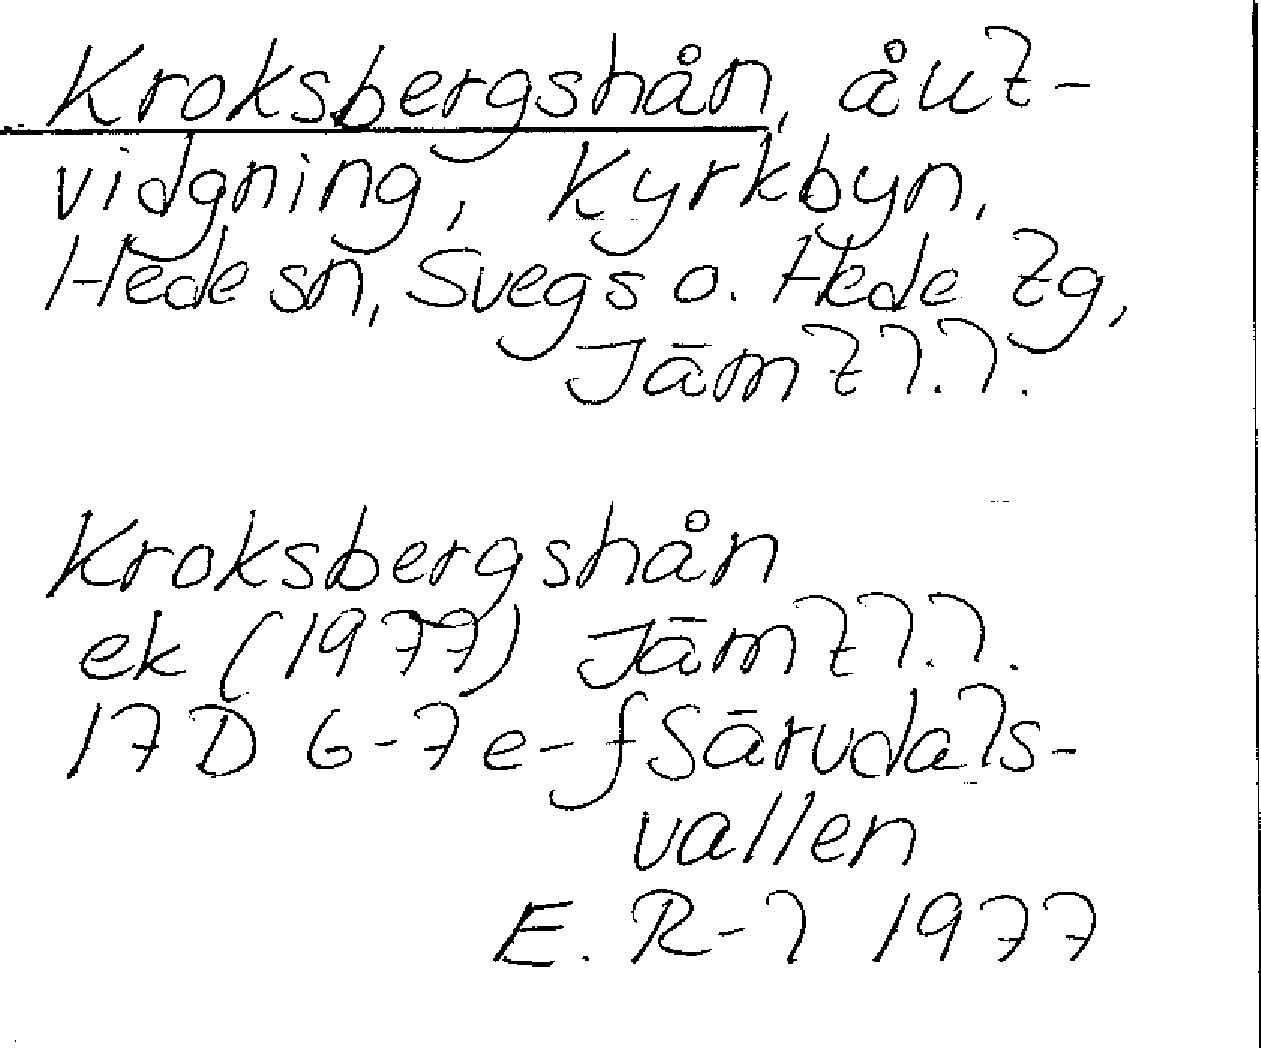 Kroksbergshån, åut-
vidgning, Kyrkbyn,
Hede sn, Svegs o. Hede tg,
Jämtl.l.
Kroksbergshån
ek (1977) Jämtl.l.
17D 6-7e-f Särvdals-
vallen
E. R-l 1977